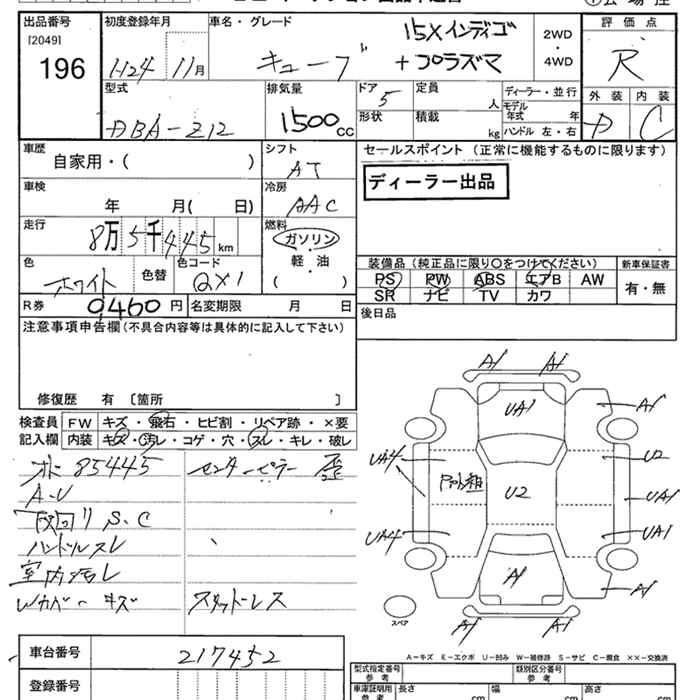 出品番号 初度登録年月 車名・グレード 15Xインディゴ 2WD 評価点
[2049] ・
196 H24 11月 キューブ +プラズマ 4WD R
型式 排気量 ドア 5 定員 人 ディーラー・並行 外装 内装
DBA-Z12 1500cc 形状 積載 kg モデル年式 年 D C
ハンドル 左・右
車歴 シフト セールスポイント(正常に機能するものに限ります)
自家用・( ) AT ディーラー出品
車検 冷房
年 月( 日) AAC
走行 燃料
8万5千445km ガソリン
軽・油
色 色替 色コード ( )
ホワイト QX1
装備品(純正品に限り○をつけてください) 新車保証書
PS PW ABS エアB AW 有・無
SR ナビ TV カワ
R券 9460円 名変期限 月 日 後日品
注意事項申告欄(不具合内容等は具体的に記入して下さい)
修復歴 有 〔箇所 〕
検査員 FW キズ・飛石・ヒビ割・リペア跡・×要
記入欄 内装 キズ・汚レ・コゲ・穴・スレ・キレ・破レ
85445 センターピラー 歪
A-U
S.C
ハンドルスレ
室内汚レ
Wカバー キズ スタッドレス
A1 A1
UA1 A1
UA4 U2
U2 UA1
UA4 UA1
A1 A1
スペア
A1 A1
A-キズ E-エクボ U-凹み W-補修跡 S-サビ C-腐食 ××-交換済
車台番号 217452
登録番号
型式指定番号 参考 類別区分番号 参考
車庫証明用 参考 長さ cm 幅 cm 高さ cm